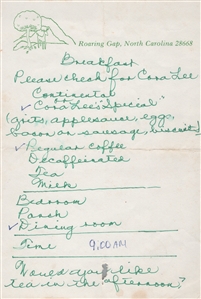 Roaring Gap, North Carolina 28668
Breakfast
Please check for Cora Lee
Continental
✓ Cora Lee "Special"
(grits, applesauce, eggs,
bacon or sausage, biscuits)
✓ Regular coffee
Decaffeinated
Tea
Milk
Bedroom
Porch
✓ Dining room
Time 9:00 AM
Would you like
tea in the afternoon?